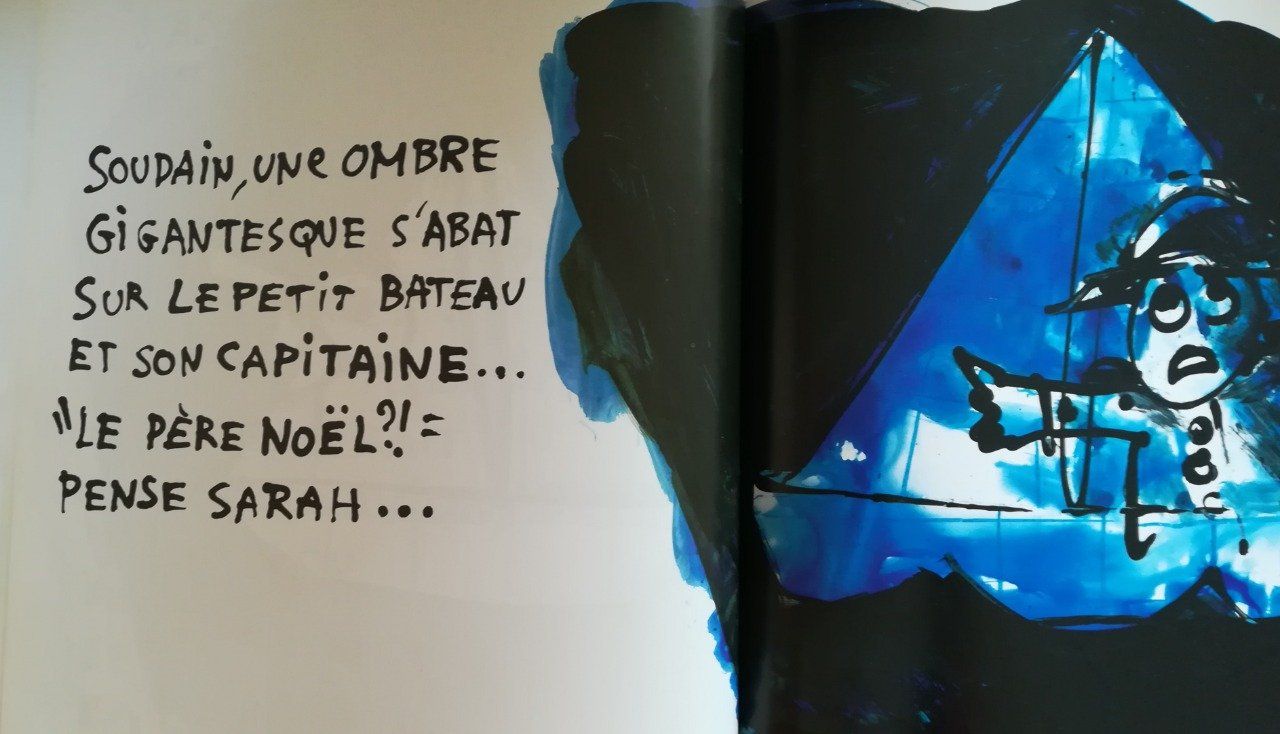 SOUDAIN, UNe OMBRE
GiGANTESQUE S'ABAT
SUR LE PETiT BATEAU
ET SON CAPiTAiNE...
"LE PÈRE NOËL?!"
PENSE SARAH...